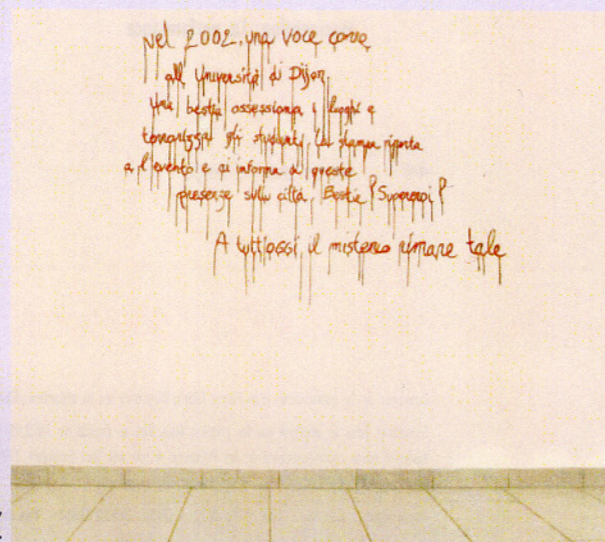 Nel 2002, una voce corre
all'Università di Dijon.
Una bestia ossessiona i luoghi e
terrorizza gli studenti, la stampa riporta
l'evento e ci informa di queste
presenze sulla città, Bestie? Supereroi?
A tutt'oggi, il mistero rimane tale